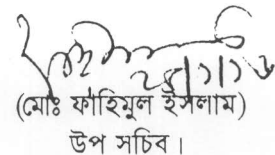 (মোঃ ফাহিমুল ইসলাম)
উপ সচিব।